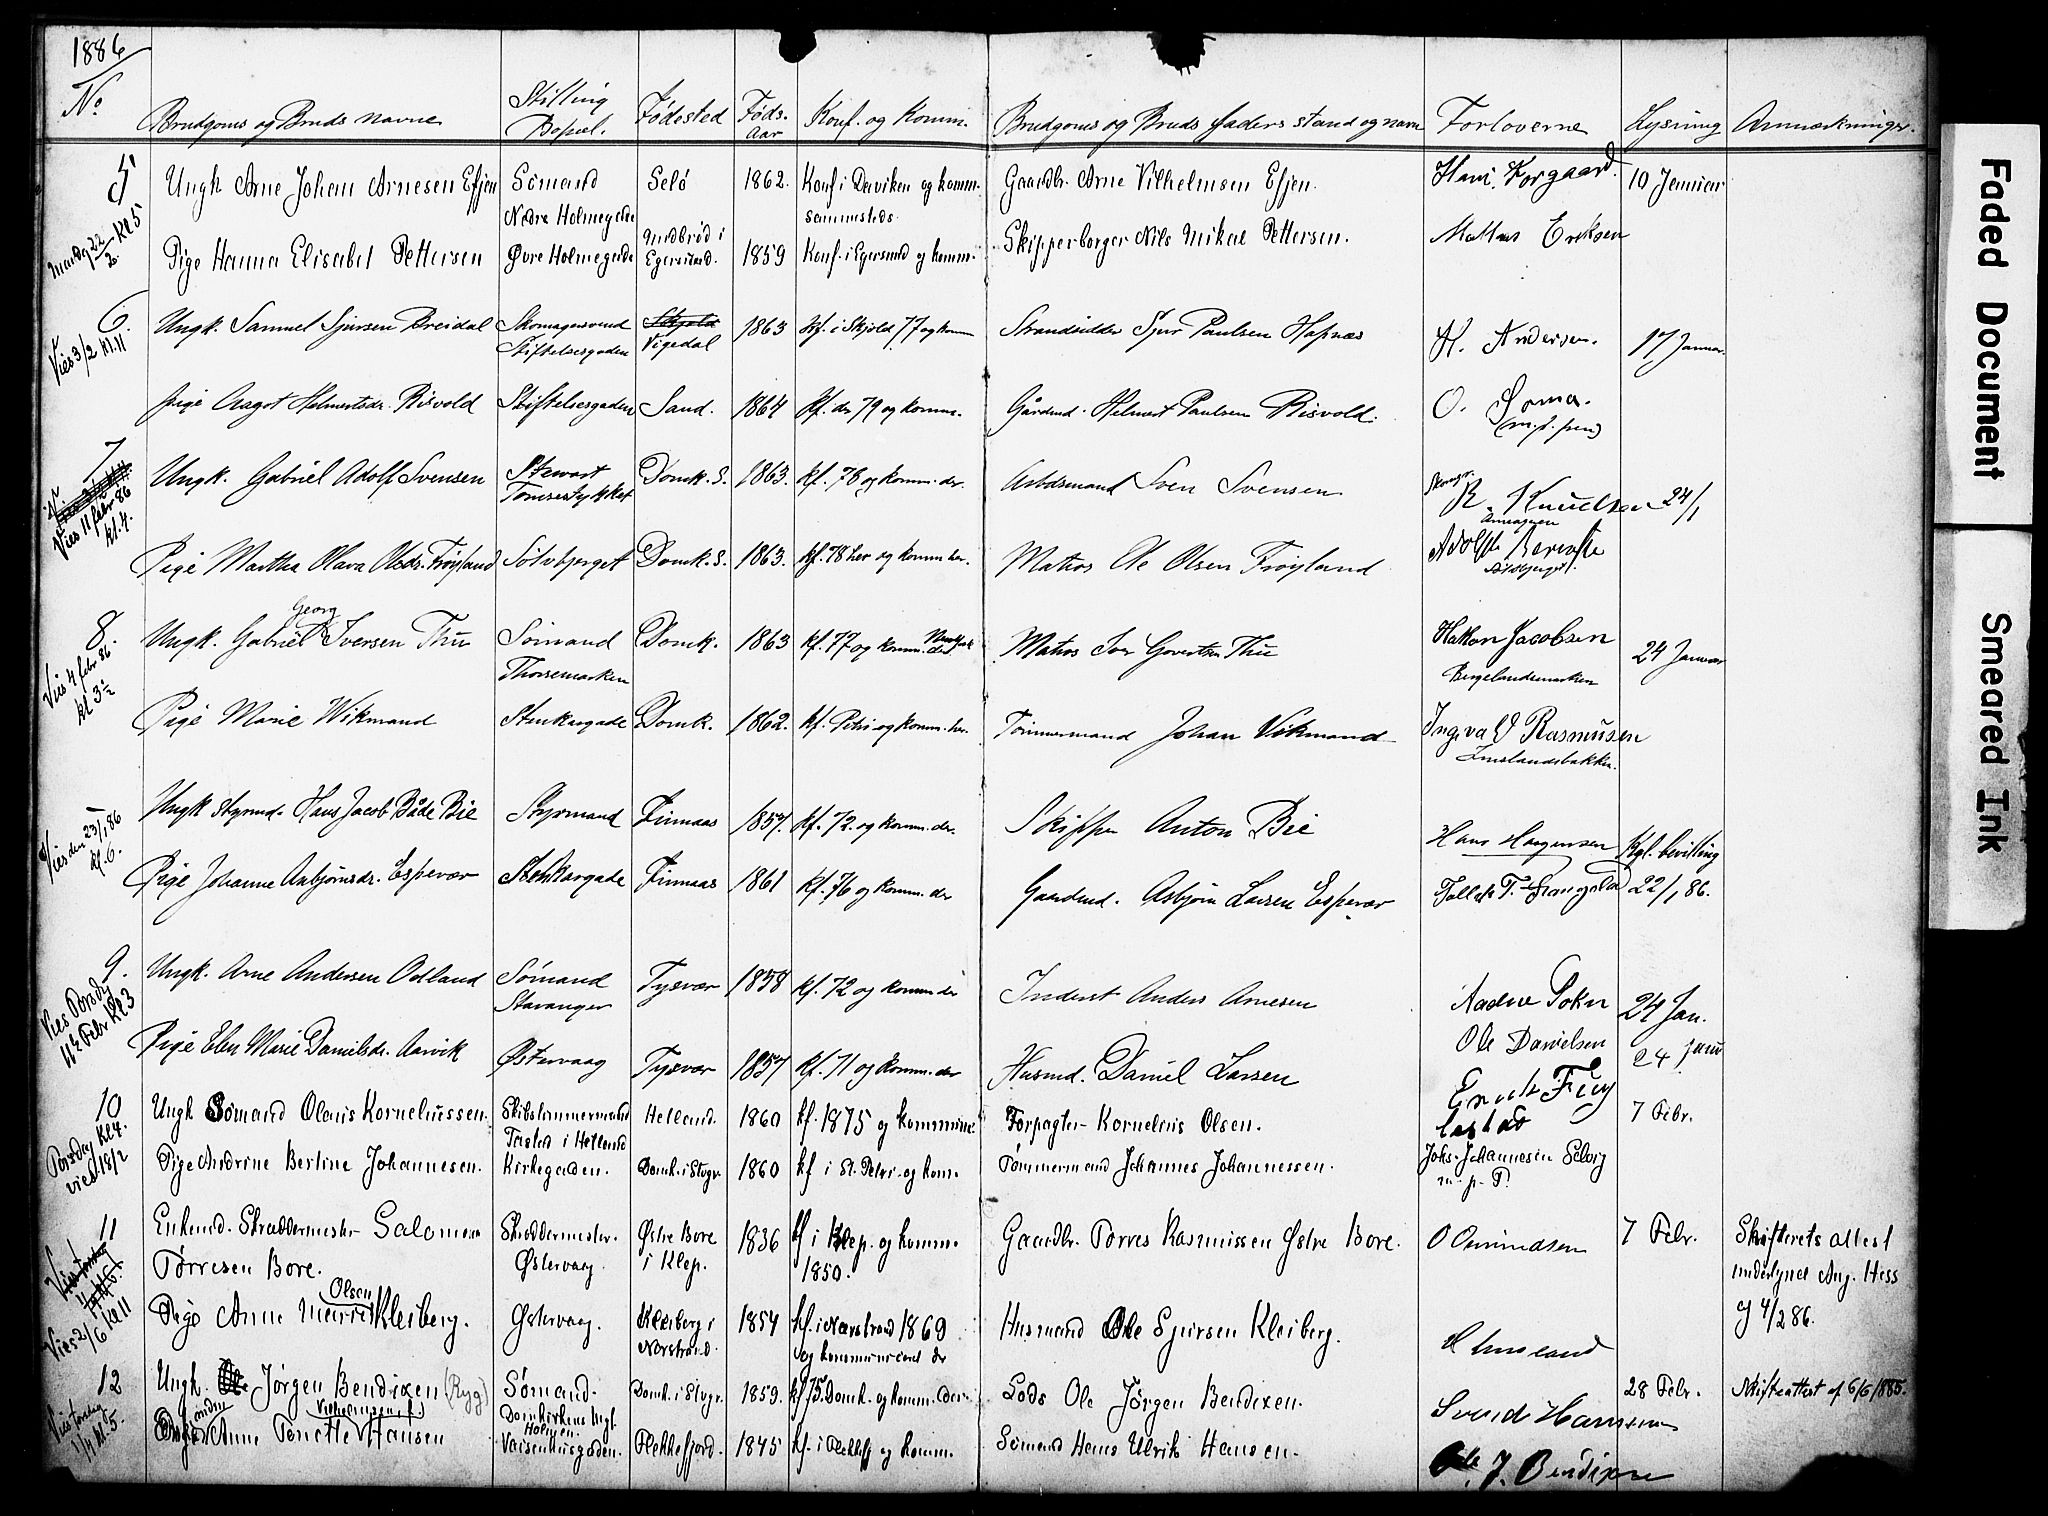 1886
No
Brudgoms og Bruds navne
Stilling
Bopæl.
Fødested
Føds.
Aar
Konf. og Komm.
Brudgoms og Bruds faders stand og navn
Forloverne
Lysning
Anmærkninger.
5
Mandag 22/2 Kl 5
Ungk Arne Johan Arnesen Efjen
Sømand
Nedre Holmegade
Selø
1862.
Konf. i Daviken og komm.
sammesteds.
Gaardbr. Arne Vilhelmsen Efjen.
Hans Korgaard.
10 Januar
Pige Hanna Elisabet Pettersen
Øvre Holmegade
Egersund.
1859
Konf. i Egersund og komm.
Skipperborger Nils Mikal Pettersen.
Eriksen
6.
Vies 3/2 kl. 11
Ungk. Samuel Sjursen Breidal
Skomagersvend
Stiftelsesgaden
Skjold
Vigedal
1863
kf. i Skjold 77 og kom
Strandsidder Sjur Paulsen Hapnæs
A. Andersen.
17 Januar.
pige Aagot Helmertsdr. Risvold
Stiftelsesgaden
Sand.
1864
kf. der 79 og komm.
Gårdmd. Helmert Paulsen Risvold.
O. Soma.
(m. p. pen)
7
Vies 11 febr 86
kl. 4.
Ungk. Gabriel Adolf Svensen
Stewart
Domk. S.
1863.
kf. 78 og komm. der.
Arbdsmand Sven Svensen
R. Knudsen
24/1
Pige Martha Olava Olsdr. Frøyland
Sølvbjerget
Domk. S.
1863.
kf. 78 her og komm her.
Matros Ole Olsen Frøyland
Adolph
8.
Vies 4 febr 86
kl 3½
Georg
Ungk. Gabriel Iversen Thu
Sømand
Domk.
1863
kf. 77 og komm.
Matros Iver Govertsen Thu
Hakon Jacobsen
Bergelandsmarken
24 Januar
Pige Marie Wikmand
Stenkargade
Domk.
1862.
kf. Petri og komm. her.
Tømmermand Johan Vikmand
Ingvald Rasmusen
Imslandsbakken.
Vies den 23/1 86
kl. 6.
Ungk styrmd. Hans Jacob Både Bie
Styrmand
Finnaas
1857.
kf. 72. og komm. der.
Skipper Anton Bie
Hans Haagensen
Kgl. bevilling
Pige Johanne Asbjørnsdr. Espevær
Stenkargade
Finnaas
1861
kf. 76 og komm. der
Gaardmd. Asbjørn Larsen Espevær
22/1 86.
9.
Vies Torsdag
11te Febr Kl 3
Ungk. Arne Andersen Odland
Sømand
Stavanger
Tysvær
1858
kf. 72 og komm der
Inderst Anders Arnesen
24 Jan.
Pige Elen Marie Danielsdr. Aarvik
Østervaag
Tysvær
1857
kf. 71 og komm. der
Husmd. Daniel Larsen
Ole Danielsen
24 Janu
10
Torsdag Kl 4.
vies 18/2
Ungk Sømand Olaus Korneliussen.
Skibstømmermand
Tasted i Hetland
Hetland.
1860
kf. 1875 og kommune
Forpagter Kornelius Olsen.
7 Febr.
Pige Andrine Bertine Johannesen.
Kirkegaden.
Domk. i Stvgr.
1860
kf i St. Petri og kom.
Tømmermand Johannes Johannessen.
Johs. Johannesen Selvig
m. p. P.
11
Vies 2/6 Kl 11
Enkemd. Skræddermester Salomon
Tørresen Bore.
Skræddermester.
Østervaag.
Østre Bore
i Klep.
1836
kf i Klep. og komm.
1850.
Gaardbr. Tørres Rasmussen Østre Bore.
O Omundsen
7 Febr.
Skifterets attest
Aug. Hess
4/2 86.
Olsen
Pige Anne Marie Kleiberg.
Østervaag.
Kleiberg i
Nerstrand.
1854
kf. i Nærstrand 1869
og kommuniceret der
Husmand Ole Sjursen Kleiberg.
12
Vies torsdag
1/4 kl. 5.
Ungk. Jørgen Bendixen (Ryg)
Sømand.
Domkirkens Mgl.
Holmen.
Domk. i Stvgr.
1859.
kf 75. Domk. og komm. der.
Lods Ole Jørgen Bendixen.
Svend Hansen
28 Febr.
Skifteattest af 6/6 1885.
Anne Tonette Hansen
Vaisenhusgaden.
Flekkefjord.
1845
kf. i Flekkefj og komm.
Sømand Hans Ulrik Hansen.
Ole. J. Bendixen
Faded Document
Smeared Ink